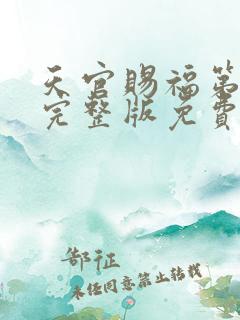 天官赐福第
完整版免费
郜征
未经同意禁止转载